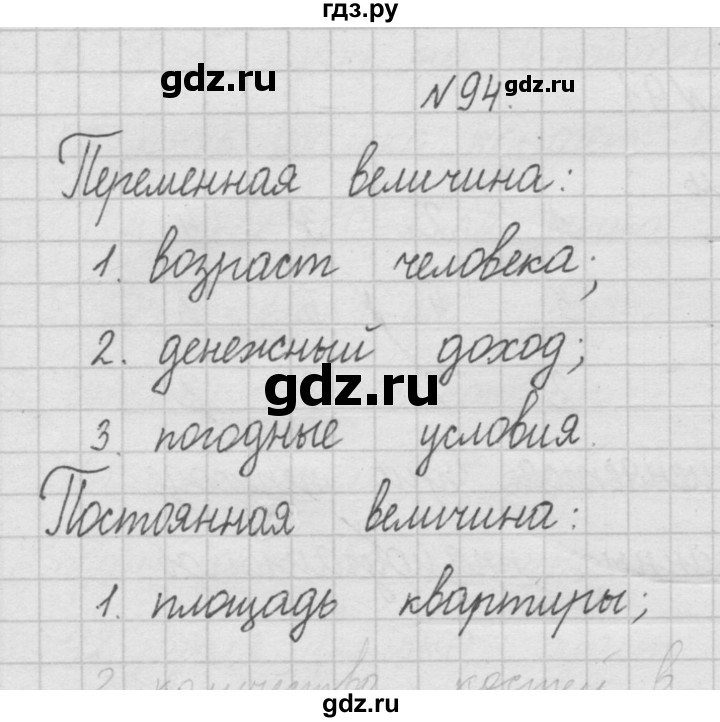 гдз.ру
gdz.ru gdz.ru
N 94.
Переменная величина:
1. возраст человека;
2. денежный доход;
gdz.ru
3. погодные условия.
Постоянная величина:
1. площадь квартиры;
2. количество костей в
gdz.ru